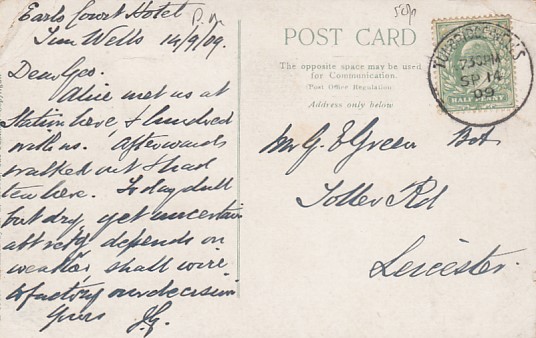 Earls Court Hotel
Tun Wells 14/9/09.
Dear Geo.
Alice met us at
Station here, & lunched
with us. Afterwards
walked out & had
tea here. To day dull
but dry, yet uncertain
abt retg depends on
weather, shall wire
to factory our decision
Yours J.G.
POST CARD
The opposite space may be used
for Communication.
(Post Office Regulation)
Address only below
TUNBRIDGE WELLS
7 30 PM
SP 14
09
HALF PENNY
Mr G. E. Green
Toller Rd
Leicester.